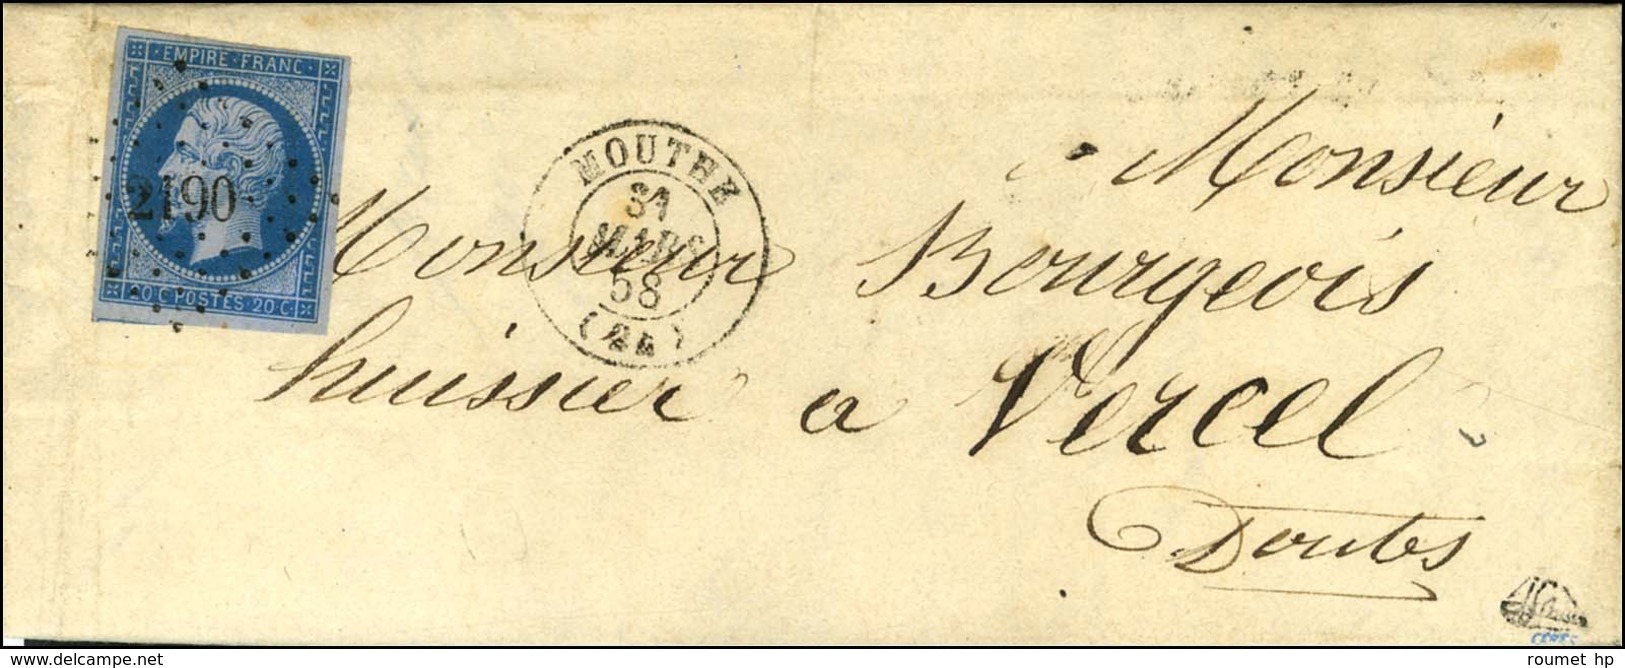 EMPIRE · FRANC ·
2190
20 C · POSTES · 20 C ·
MOUTHE
31
MARS
58
(24)
Monsieur
Monsieur Bourgeois
huissier a Vercel
Doubs
CERES
roumet hp